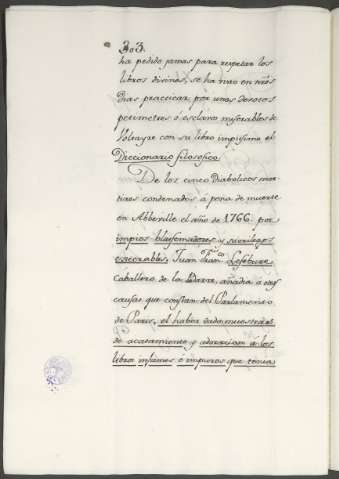 303.
ha pedido jamas para respetar los
libros divinos, se ha visto en ntros
dias practicar por unos
petimetres ó esclavos miserables de
Volteyre con su libro impisimo el
Diccionario filosofico.
De los cinco diabolicos
condenados a pena de muerte
en Abbeville el año de 1766. por
impios blasfemadores y sacrilegos
execrables, Juan Fran.co Lefebure
caballero de la Barre, añadia a sus
causas que constan del Parlamento
de Paris, el haber dado muestras
de acatamiento y adoracion á los
libros infames é impuros que tenia